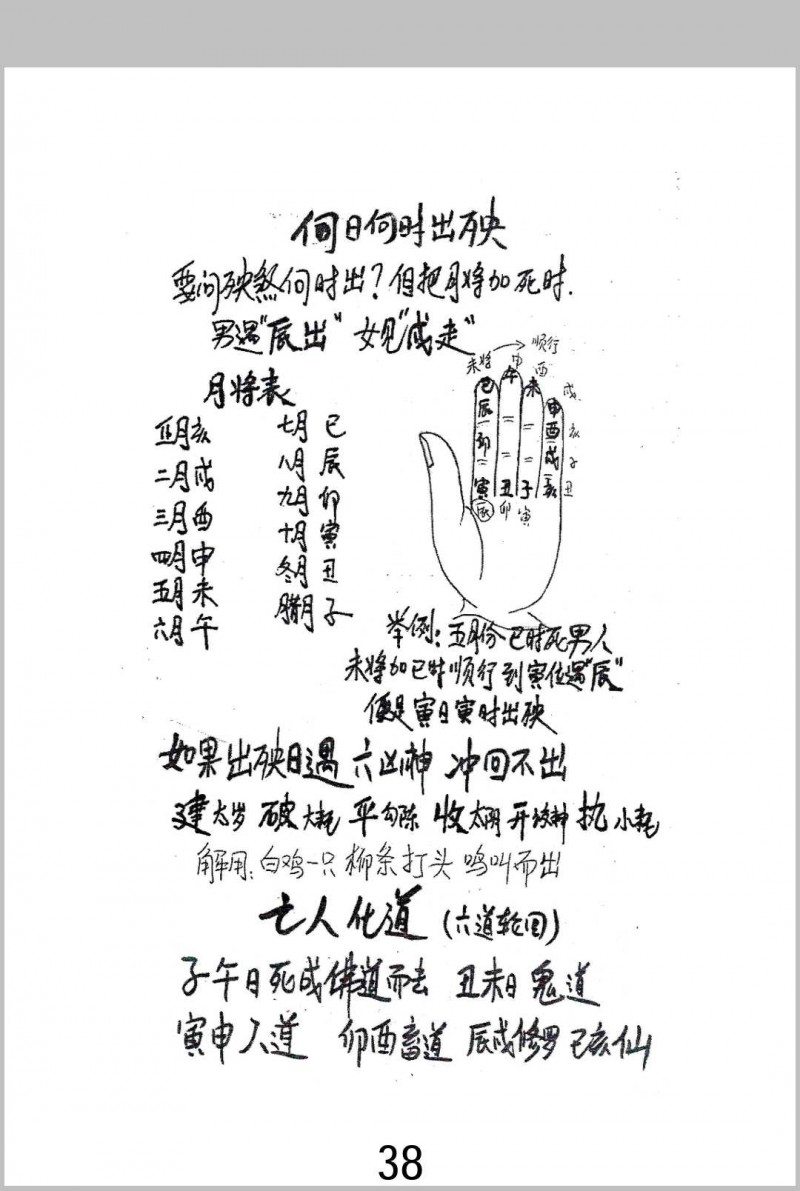 何日何时出殃
要问殃煞何时出？但把月将加死时.
男遇"辰出" 女见"戌走"
月将表
正月亥
二月戌
三月酉
四月申
五月未
六月午
七月 巳
八月 辰
九月 卯
十月 寅
冬月 丑
腊月 子
顺行
未将 申 酉 戌
巳 午 未
辰 申
卯 酉 亥
戌 子
寅 丑 子 亥 丑
辰 卯 寅
举例：五月份巳时死男人
未将加巳时顺行到寅位遇"辰"
便是寅日寅时出殃
如果出殃日遇 六凶神 冲回不出
建太岁 破大耗 平勾陈 收太阴 开 执小耗
解用：白鸡一只 柳条打头 鸣叫而出
亡人化道（六道轮回）
子午日死成佛道而去 丑未日 鬼道
寅申人道 卯酉畜道 辰戌修罗 巳亥仙
38